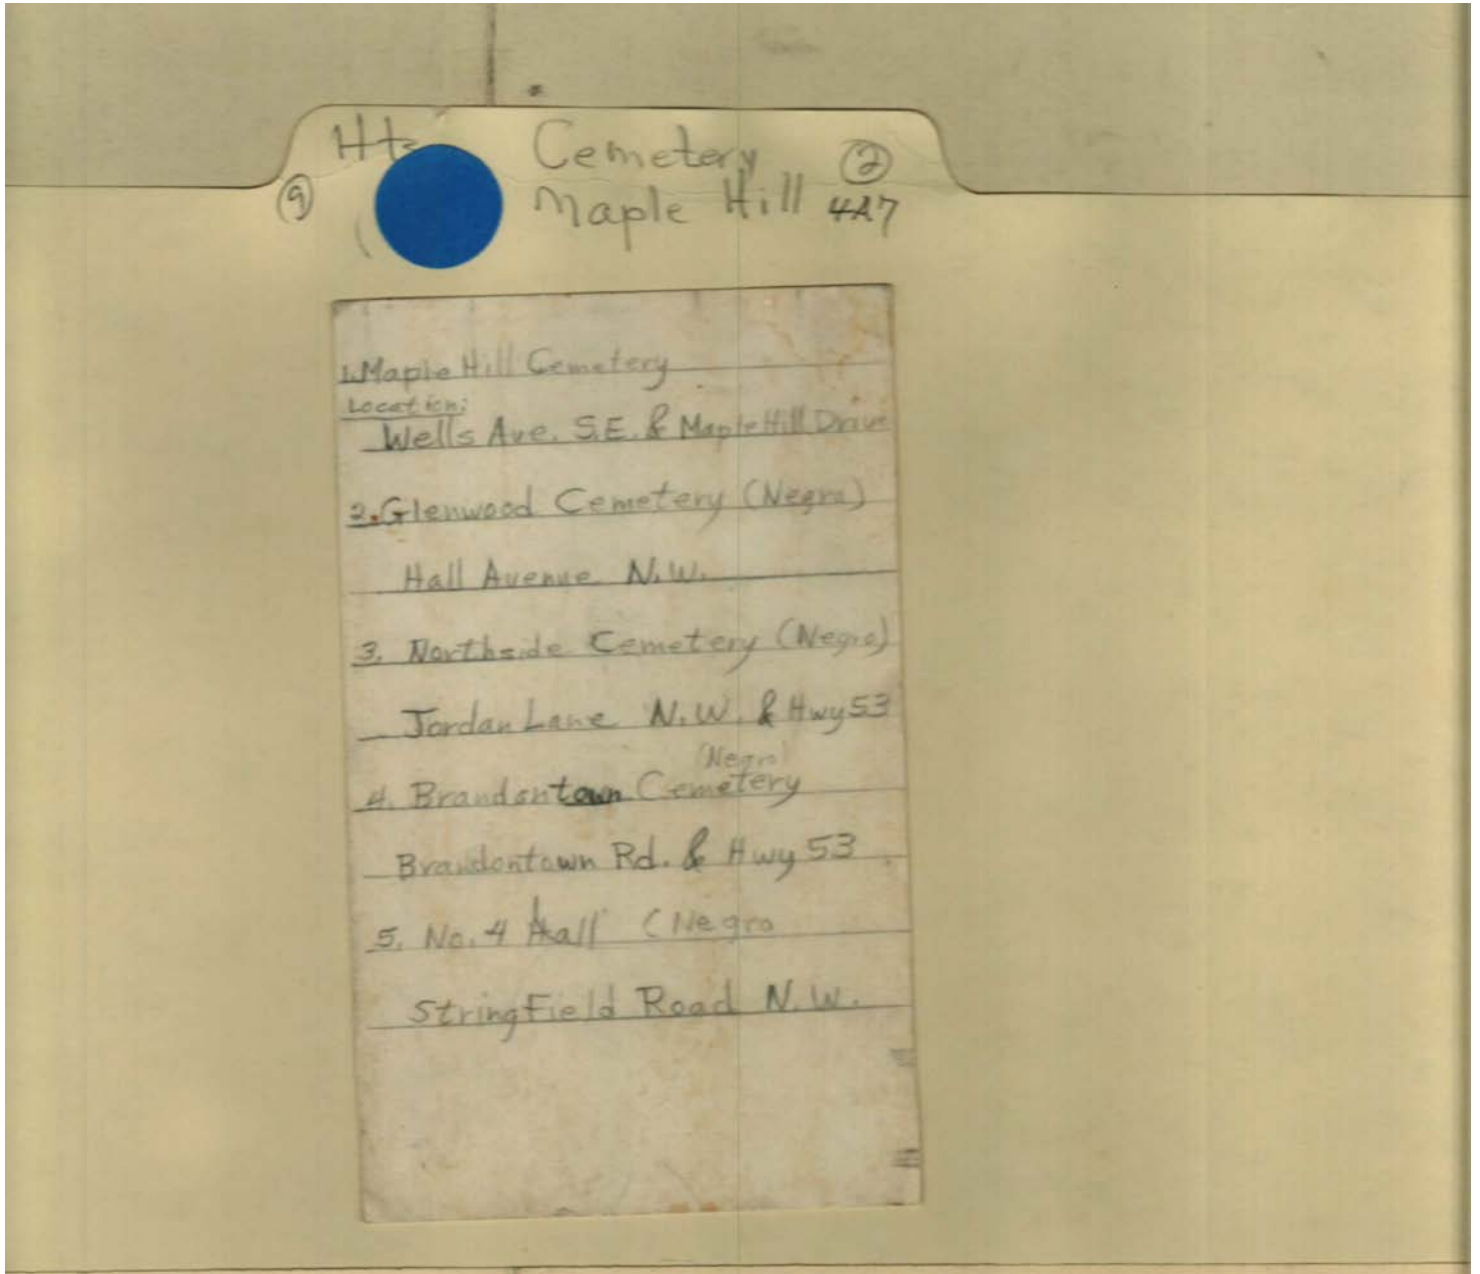 Cemetery ②
⑨ Maple Hill 4A7
1. Maple Hill Cemetery
Location:
Wells Ave. S.E. & Maple Hill Drive
2. Glenwood Cemetery (Negro)
Hall Avenue N.W.
3. Northside Cemetery (Negro)
Jordan Lane N.W. & Hwy 53
(Negro)
4. Brandontown Cemetery
Brandontown Rd. & Hwy 53
5. No. 4 Hall (Negro
Stringfield Road N.W.